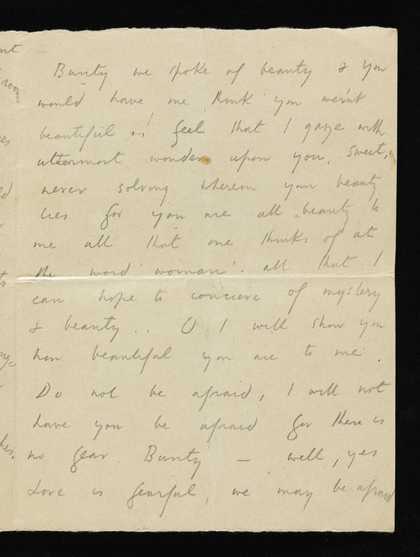 Bunty we spoke of beauty & you
would have me think you weren't
beautiful & I feel that I gaze with
uttermost wonder upon you, sweet,
never solving wherein your beauty
lies for you are all beauty to
me all that one thinks of at
the word 'woman'. all that I
can hope to conceive of mystery
& beauty . . O I will show you
how beautiful you are to me.
Do not be afraid, I will not
have you be afraid for there is
no fear Bunty — well, yes
Love is fearful, we may be afraid